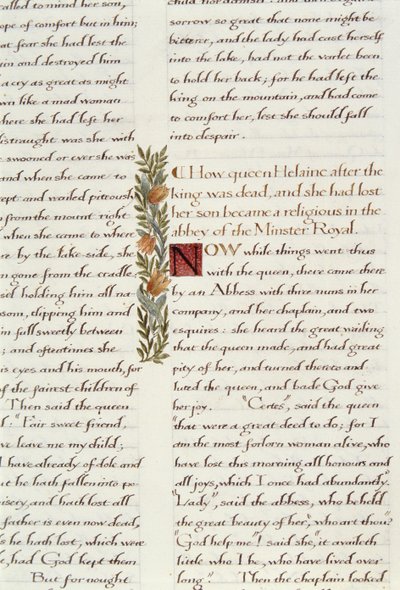 called to mind her son,
ope of comfort but in him;
at fear she had lest the
in and destroyed him
a cry as great as might
wn like a mad woman
here she had left her
istraught was she with
e swooned or ever she was
and when she came to
wept and wailed piteously
p from the mount right
when she came to where
re by the lake-side, she
n gone from the cradle;
sel holding him all na-
som, clipping him and
in full sweetly between
; and oftentimes she
is eyes and his mouth, for
of the fairest children of
Then said the queen
l: "Fair sweet friend,
ve leave me my child;
I have already of dole and
ut he hath fallen into po-
isery, and hath lost all
father is even now dead,
s he hath lost, which were
e, had God kept them
But for nought
sorrow so great that none might be
bitterer, and the lady had cast herself
into the lake, had not the varlet been
to hold her back; for he had left the
king on the mountain, and had come
to comfort her, lest she should fall
into despair.
How queen Helaine after the
king was dead, and she had lost
her son became a religious in the
abbey of the Minster Royal.
NOW while things went thus
with the queen, there came there
by an Abbess with three nuns in her
company, and her chaplain, and two
esquires: she heard the great wailing
that the queen made, and had great
pity of her, and turned thereto and
luted the queen, and bade God give
her joy. "Certes", said the queen
"that were a great deed to do; for I
am the most forlorn woman alive, who
have lost this morning all honours and
all joys, which I once had abundantly."
"Lady", said the abbess, who beheld
the great beauty of her, "who art thou?"
"God help me! said she", it availeth
little who I be, who have lived over
long." Then the chaplain looked